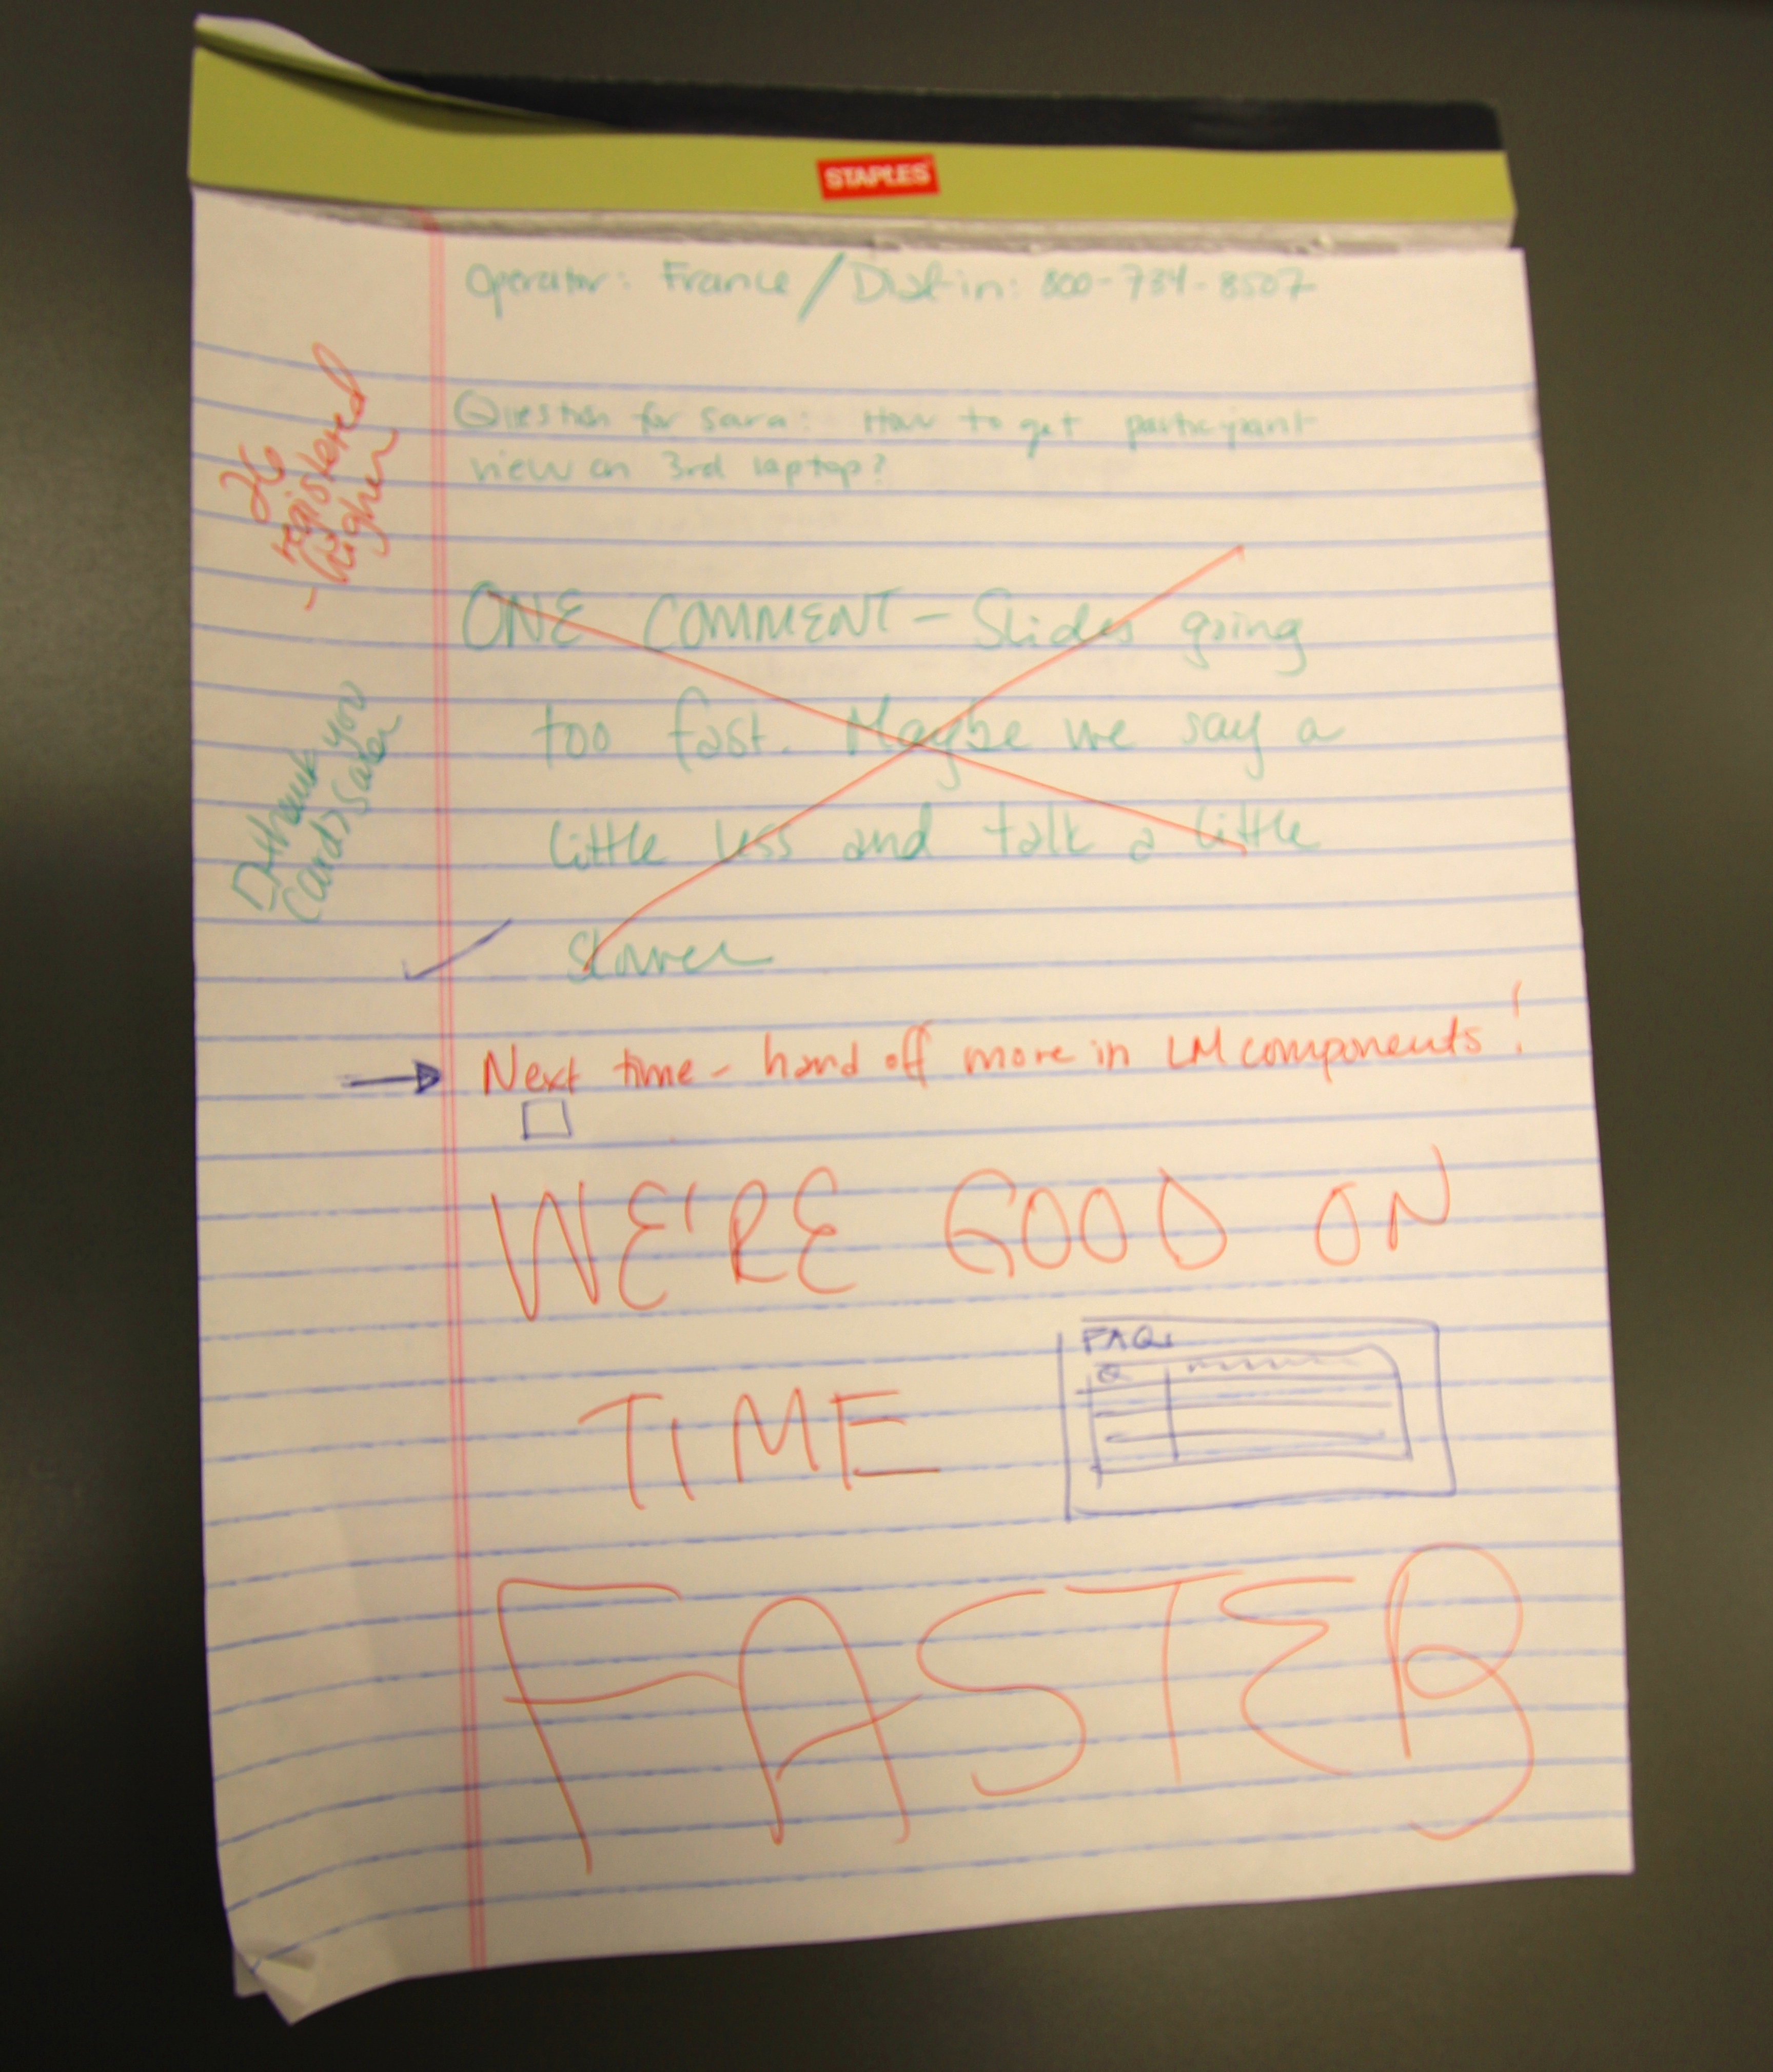 STAPLES
Operator: France / Dial-in: 800-734-8507
Question for Sara: How to get participant
view on 3rd laptop?
26
registered
- higher
ONE COMMENT - Slides going
too fast. Maybe we say a
little less and talk a little
slower
thank you
cards Sara
Next time - hand off more in LM components!
WE'RE GOOD ON
TIME
FAQs
Q
FASTER